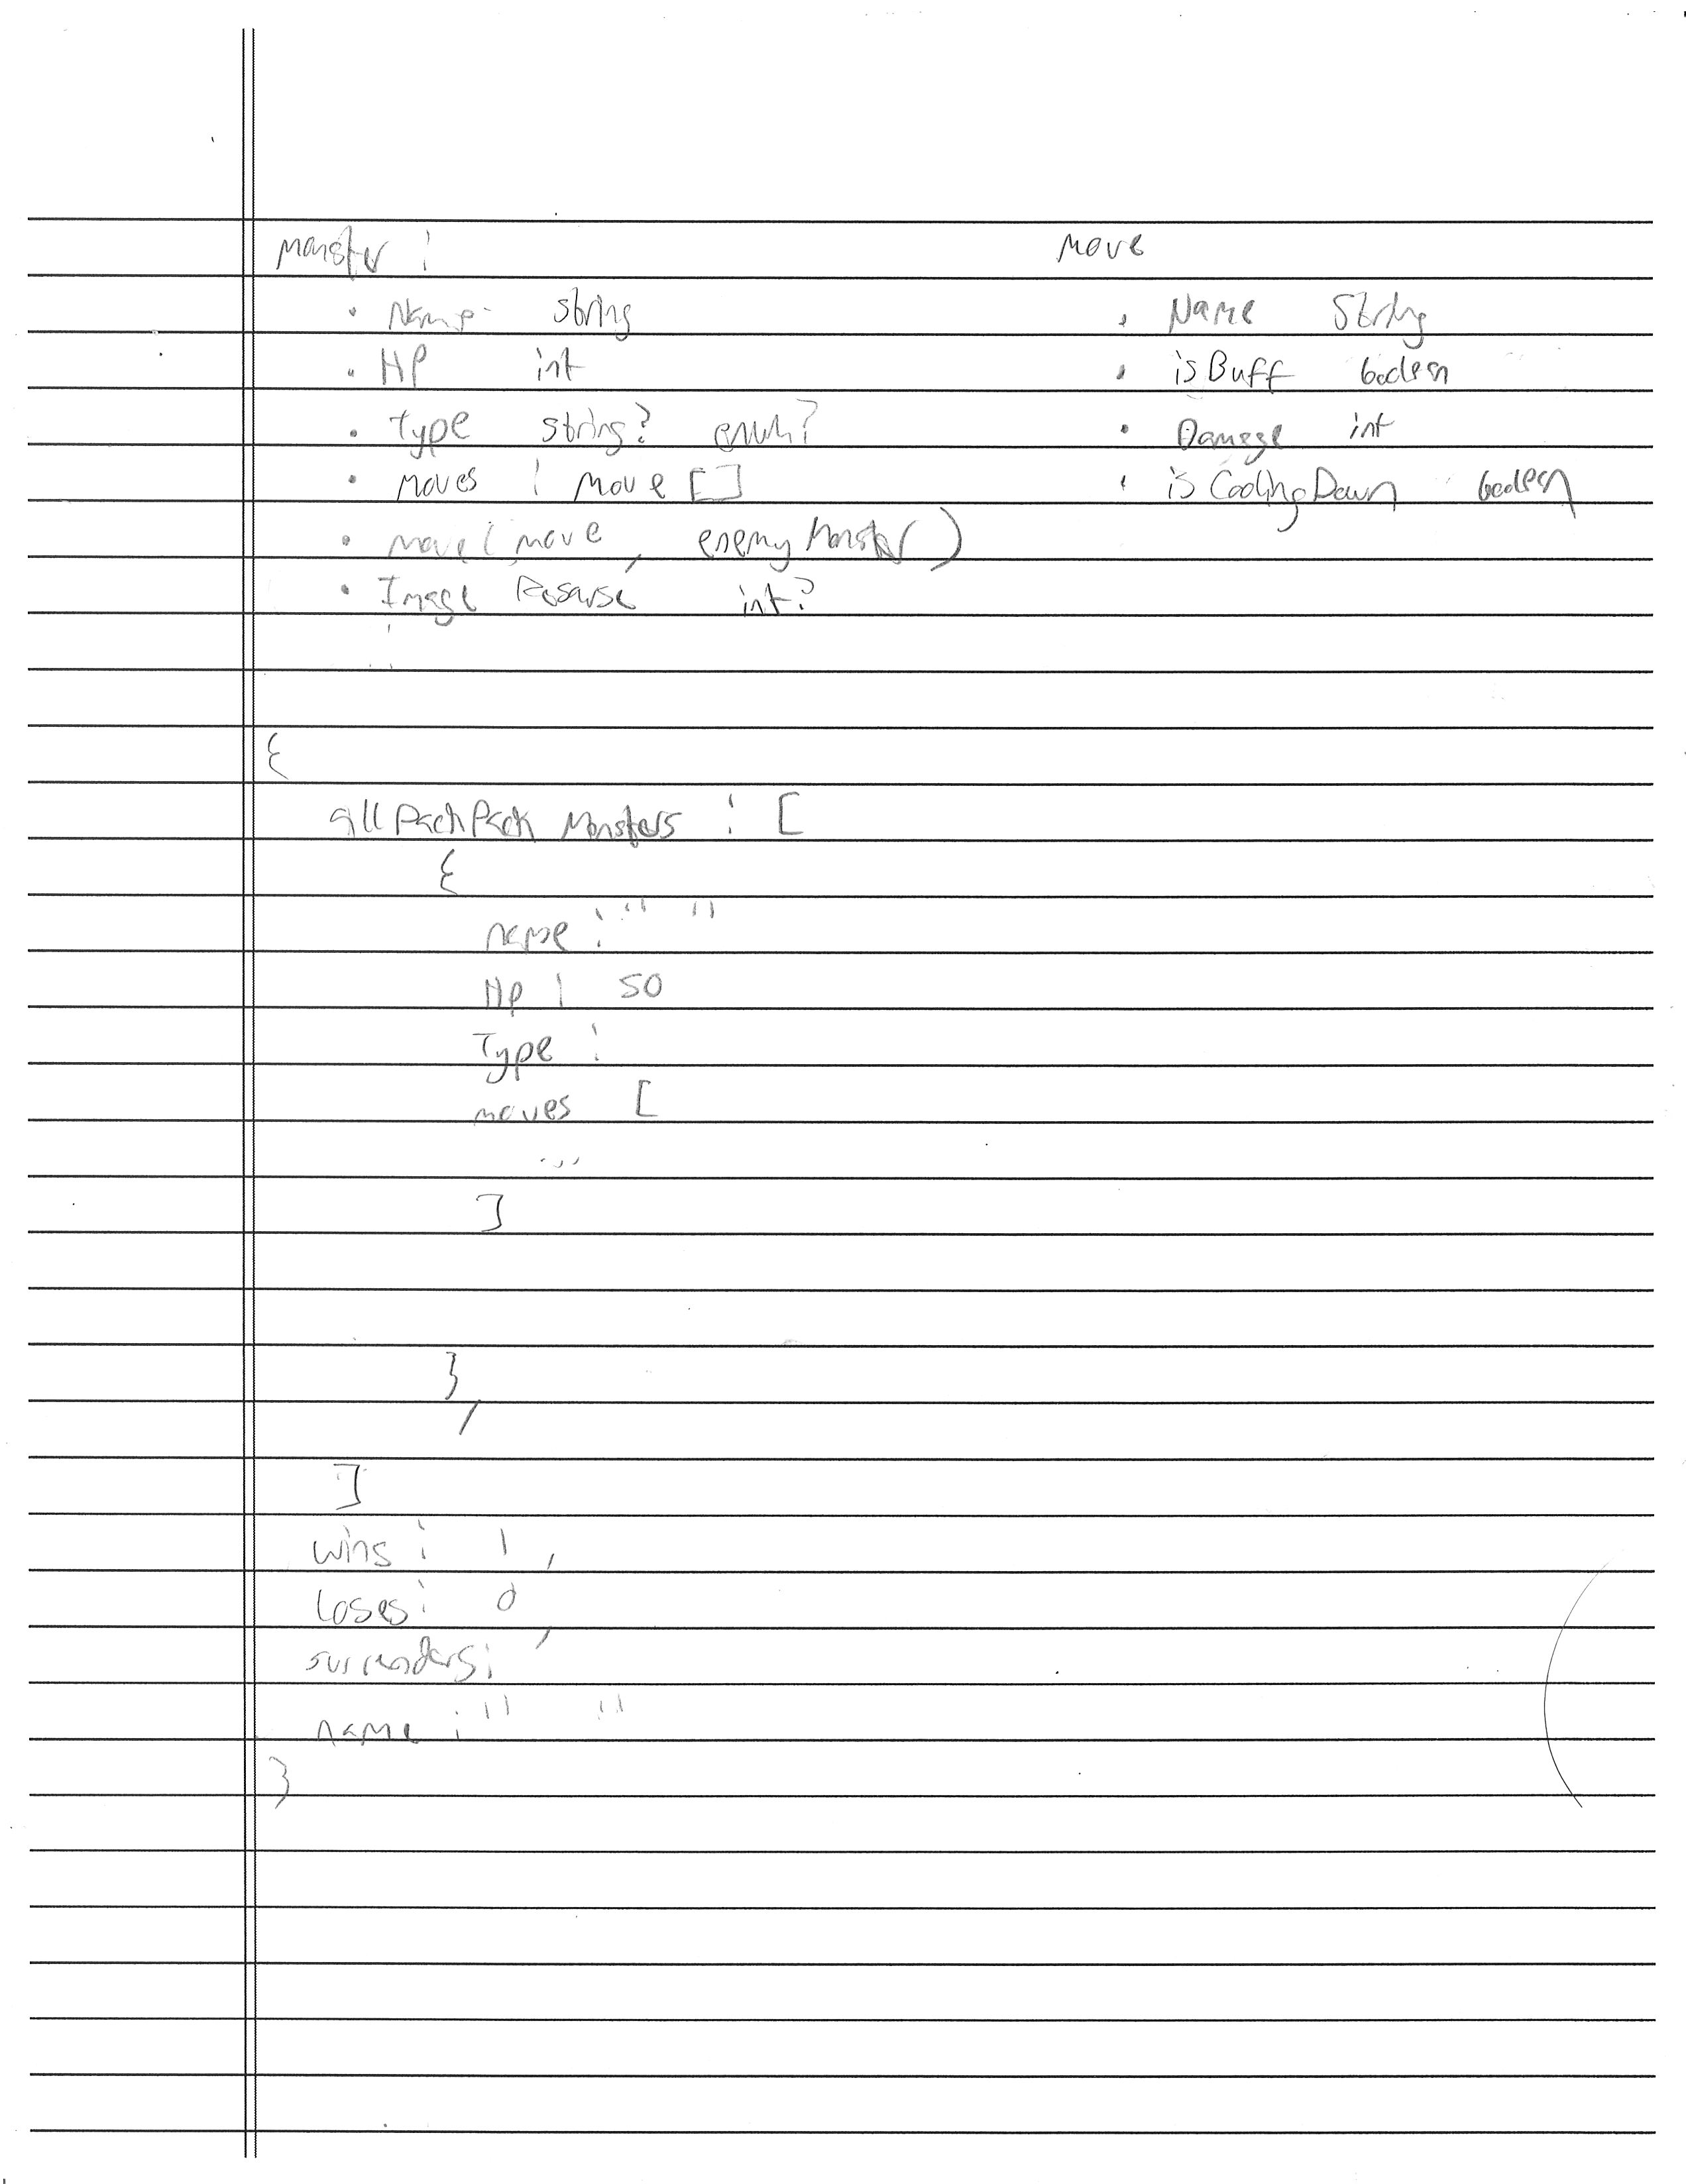 Monster :
• Name string
• HP int
• Type string? enum?
• moves : move []
• move (move, enemyMonster)
• Image Resourse int?
Move
• Name String
• isBuff boolean
• Damage int
• isCoolingDown boolean
{
all PackPack Monsters : [
{
name : " "
Hp : 50
Type :
moves [
...
]
}
,
]
wins : 1 ,
loses : 0 ,
surrenders :
name : " "
}